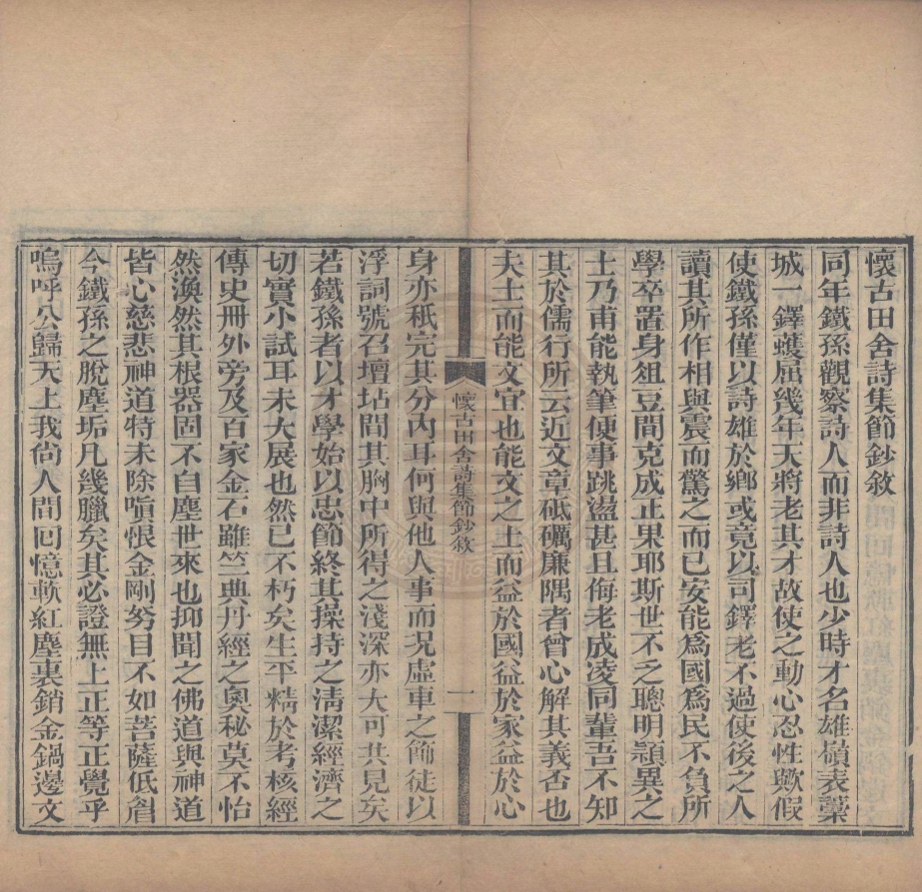 懷古田舍詩集節鈔敘
同年鐵孫觀察詩人而非詩人也少時才名雄嶺表藁
城一鐸蠖屈幾年天將老其才故使之動心忍性歟假
使鐵孫僅以詩雄於鄉或竟以司鐸老不過使後之人
讀其所作相與震而驚之而已安能爲國爲民不負所
學卒置身俎豆閒克成正果耶斯世不乏聰明穎異之
士乃甫能執筆便事跳盪甚且侮老成凌同輩吾不知
其於儒行所云近文章砥礪廉隅者曾心解其義否也
夫士而能文宜也能文之士而益於國益於家益於心
懷古田舍詩集節鈔敘
一
身亦秖完其分內耳何與他人事而况虛車之飾徒以
浮詞號召壇坫間其胸中所得之淺深亦大可共見矣
若鐵孫者以才學始以忠節終其操持之淸潔經濟之
切實小試耳未大展也然已不朽矣生平精於考核經
傳史冊外旁及百家金石雖竺典丹經之奧秘莫不怡
然渙然其根器固不自塵世來也抑聞之佛道與神道
皆心慈悲神道特未除嗔恨金剛努目不如菩薩低眉
今鐵孫之脫塵垢凡幾臘矣其必證無上正等正覺乎
嗚呼公歸天上我尙人間回憶軟紅塵裏銷金鍋邊文